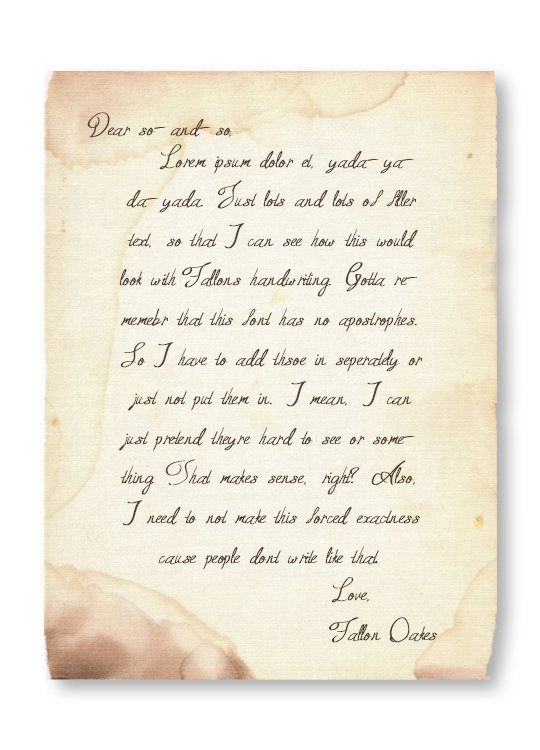 Dear so- and- so,
Lorem ipsum dolor et, yada- ya-
da- yada. Just lots and lots of filler
text, so that I can see how this would
look with Fallons handwriting. Gotta re-
memebr that this font has no apostrophes.
So I have to add thsoe in seperately or
just not put them in. I mean, I can
just pretend theyre hard to see or some-
thing That makes sense, right? Also,
I need to not make this forced exactness
cause people dont write like that.
Love,
Fallon Oakes